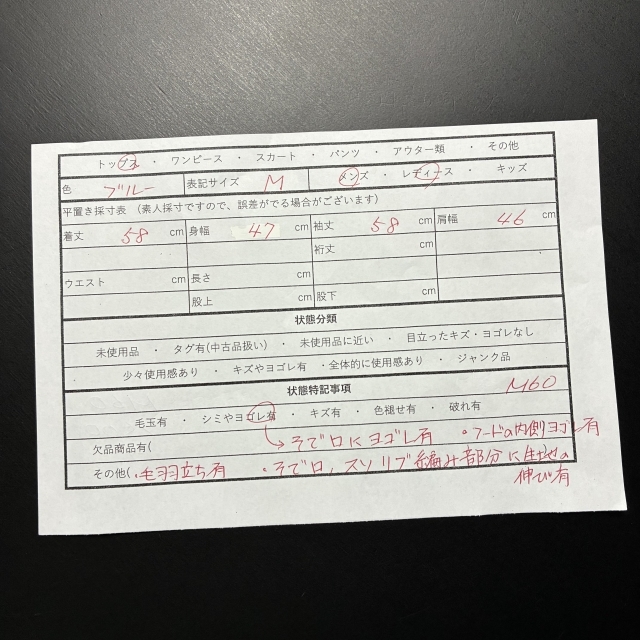 トップス ・ ワンピース ・ スカート ・ パンツ ・ アウター類 ・ その他
色 ブルー 表記サイズ M メンズ ・ レディース ・ キッズ
平置き採寸表 (素人採寸ですので、誤差がでる場合がございます)
着丈 58 cm 身幅 47 cm 袖丈 58 cm 肩幅 46 cm
裄丈 cm
ウエスト cm 長さ cm
股上 cm 股下 cm
状態分類
未使用品 ・ タグ有(中古品扱い) ・ 未使用品に近い ・ 目立ったキズ・ヨゴレなし
少々使用感あり ・ キズやヨゴレ有 ・全体的に使用感あり ・ ジャンク品
状態特記事項 M60
毛玉有 ・ シミやヨゴレ有 ・ キズ有 ・ 色褪せ有 ・ 破れ有
欠品商品有( →そで口にヨゴレ有 ・フードの内側ヨゴレ有
その他( ・毛羽立ち有 ・そで口、スソリブ編み部分に生地の
伸び有